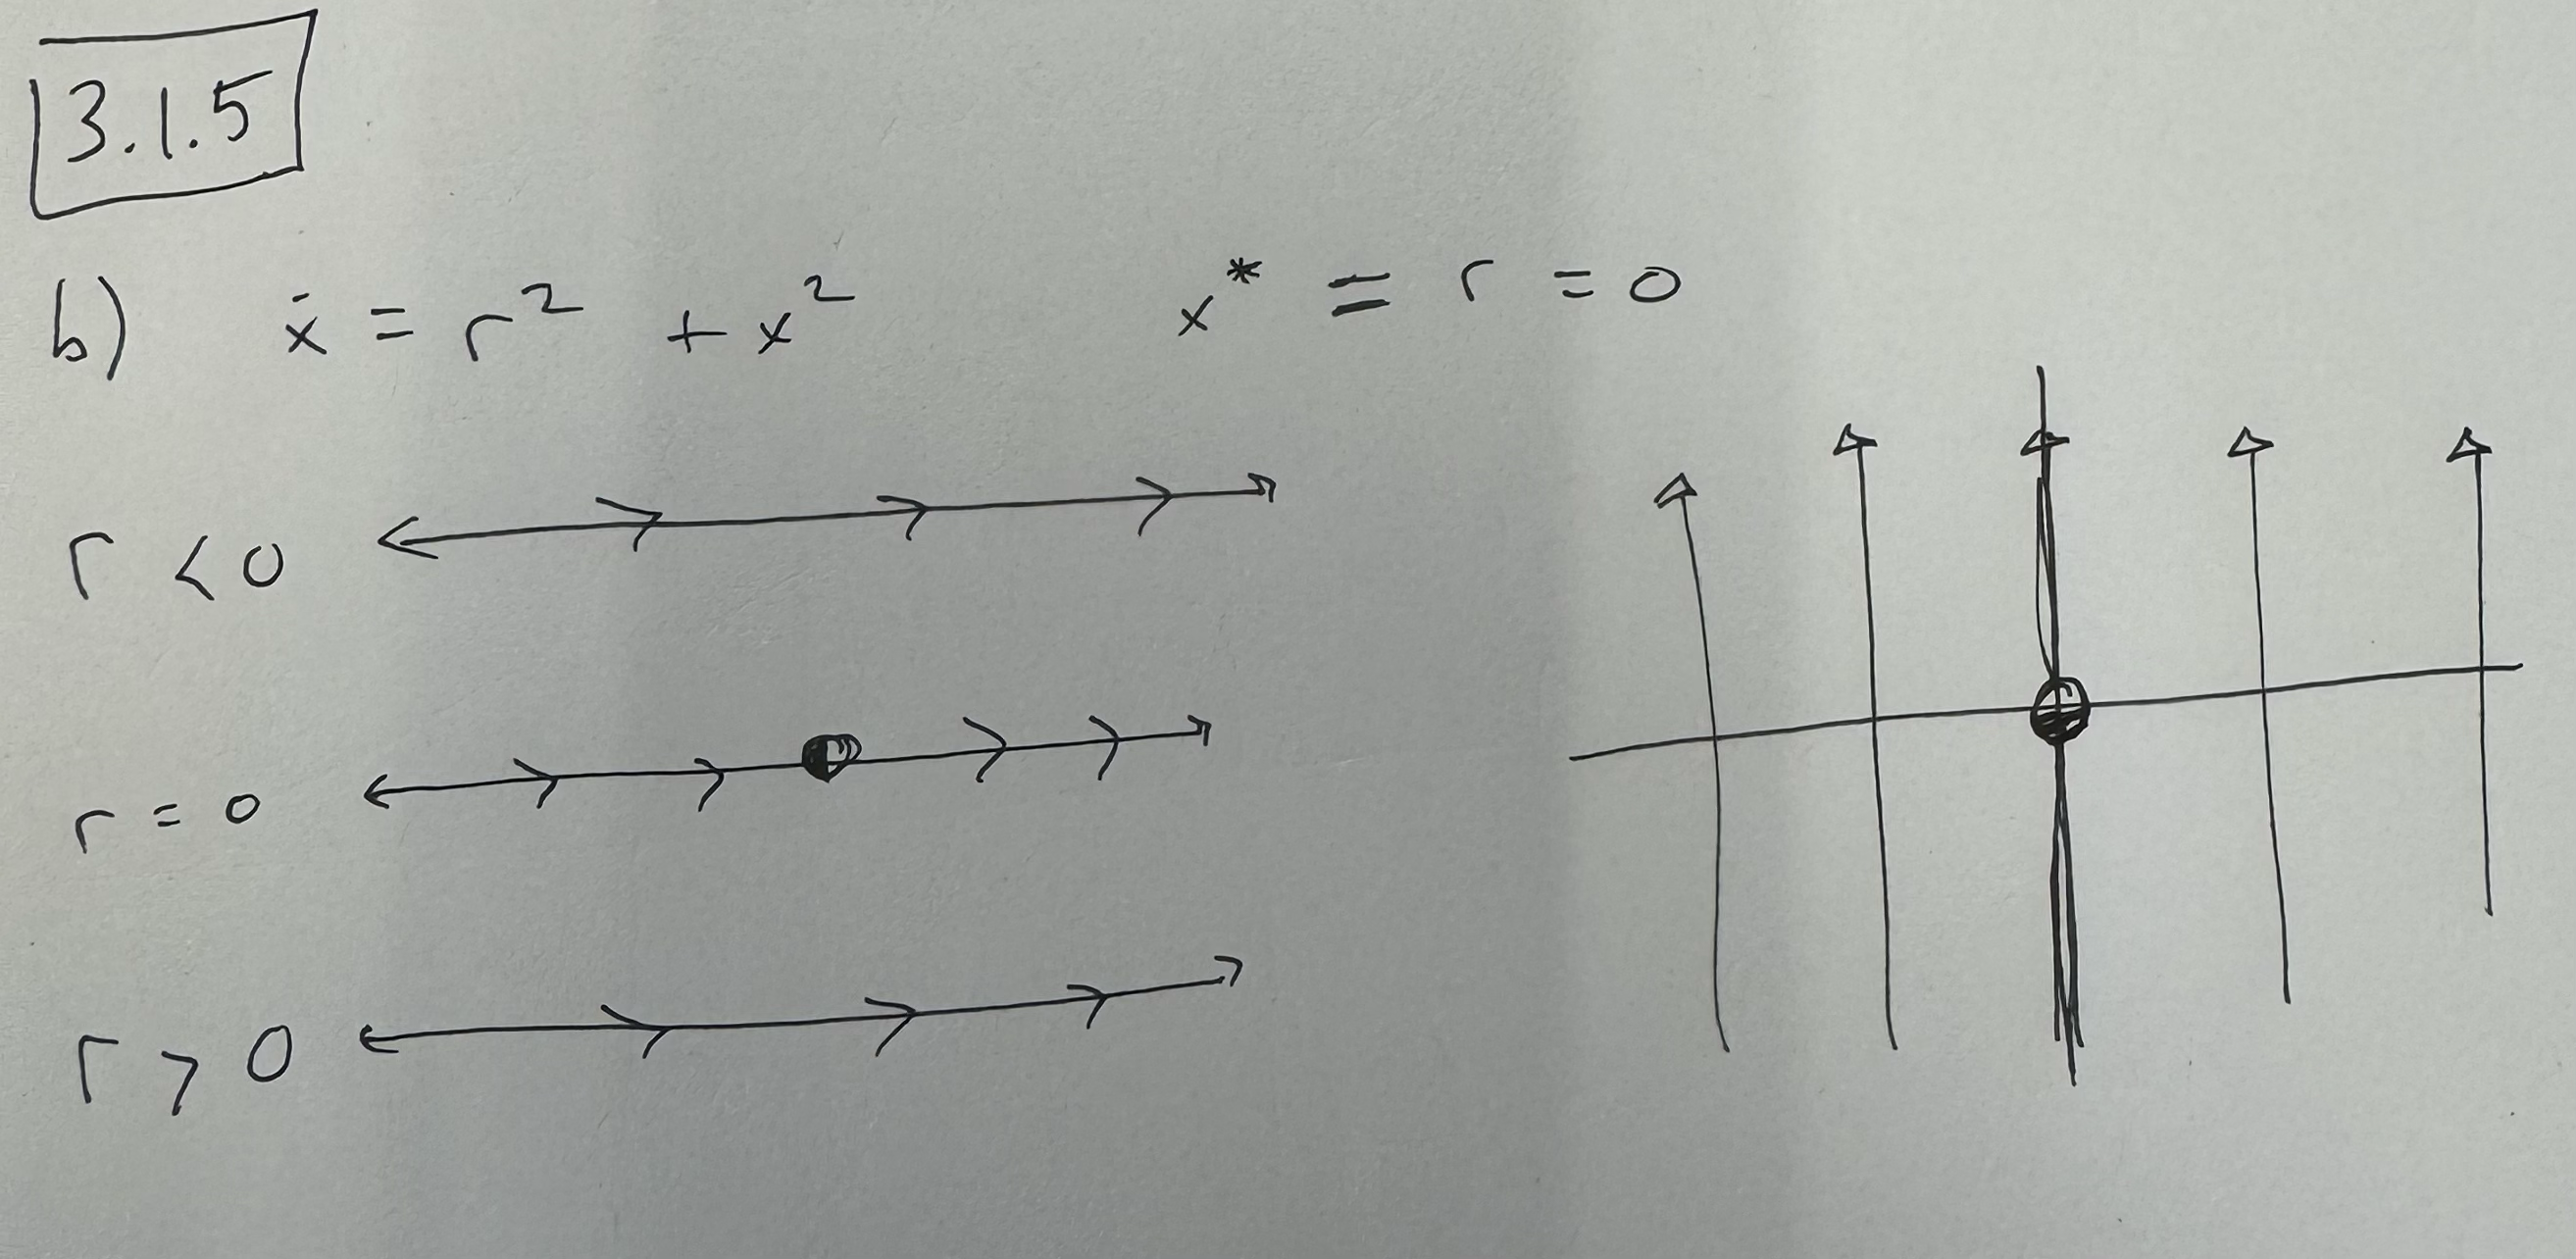 3.1.5
b) ẋ = r² + x² x* = r = 0
r < 0
r = 0
r > 0